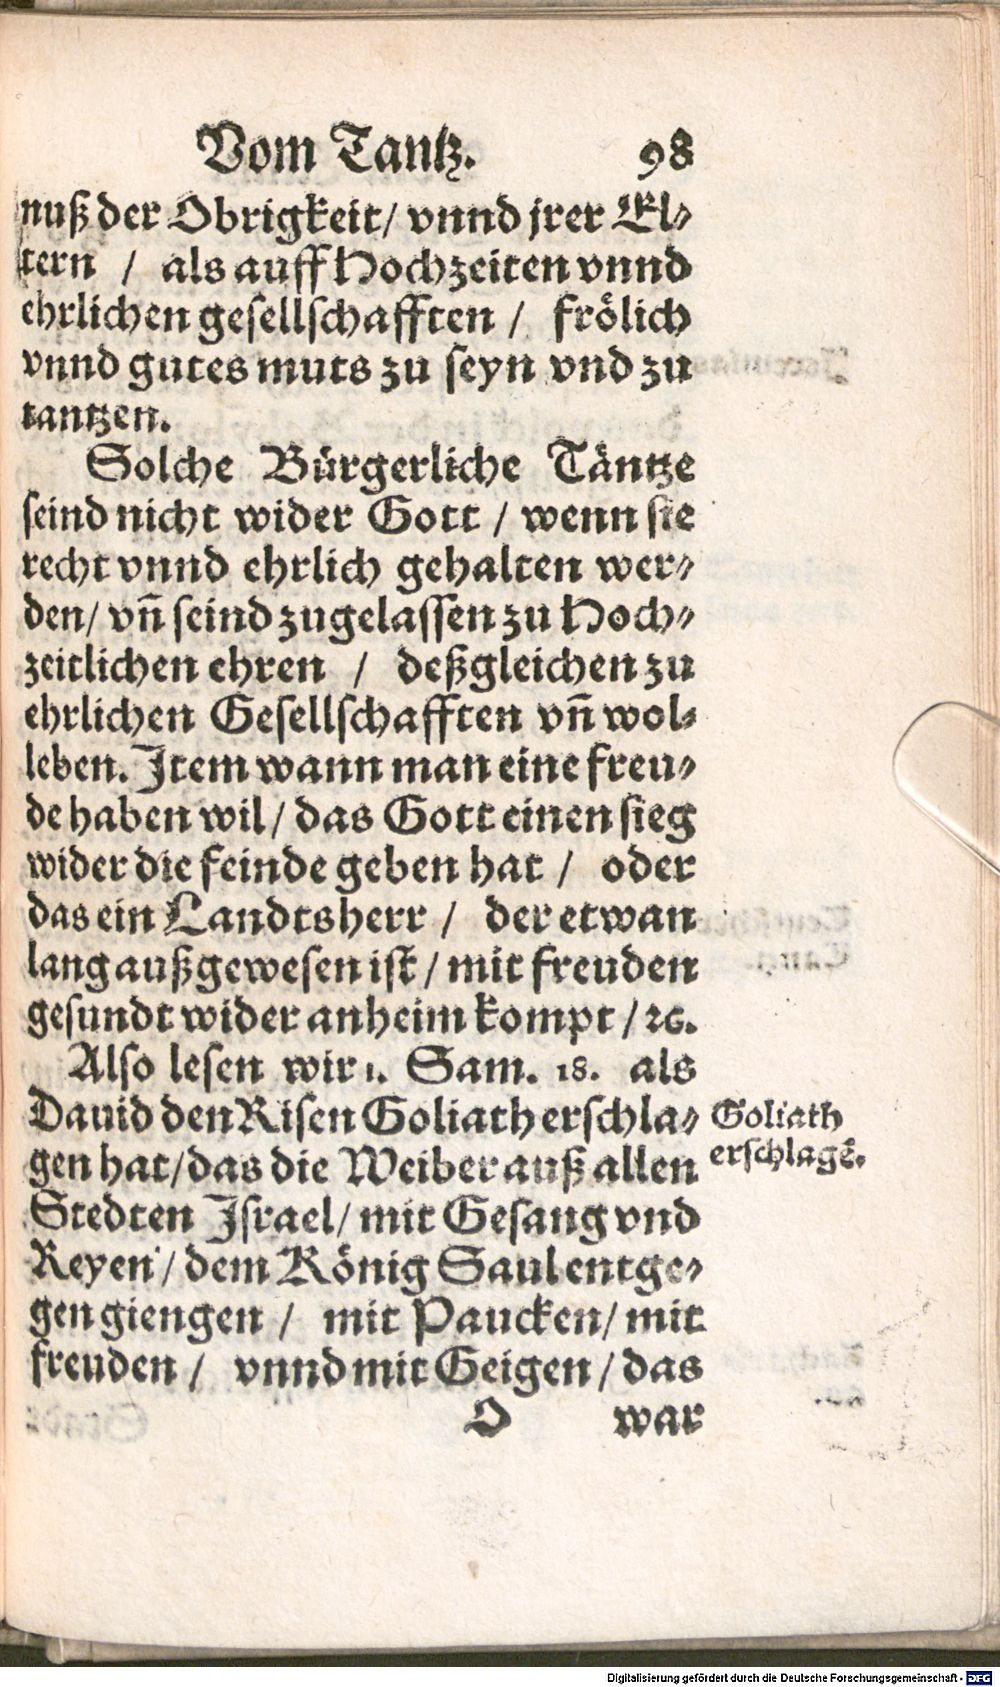 Vom Tantz. 98
nuß der Obrigkeit/ vnnd jrer El⸗
tern / als auff Hochzeiten vnnd
ehrlichen gesellschafften / frölich
vnnd gutes muts zu seyn vnd zu
tantzen.
Solche Bürgerliche Täntze
seind nicht wider Gott / wenn sie
recht vnnd ehrlich gehalten wer⸗
den/ vñ seind zugelassen zu Hoch⸗
zeitlichen ehren / deßgleichen zu
ehrlichen Gesellschafften vñ wol⸗
leben. Item wann man eine freu⸗
de haben wil/ das Gott einen sieg
wider die feinde geben hat / oder
das ein Landtsherr / der etwan
lang außgewesen ist/ mit freuden
gesundt wider anheim kompt /ꝛc.
Also lesen wir 1. Sam. 18. als
Dauid den Risen Goliath erschla⸗
gen hat/das die Weiber auß allen
Stedten Israel/ mit Gesang vnd
Reyen / dem König Saul entge⸗
gen giengen / mit Paucken/ mit
freuden / vnnd mit Geigen/ das
O war
Goliath
erschlagẽ.
Digitalisierung gefördert durch die Deutsche Forschungsgemeinschaft - DFG